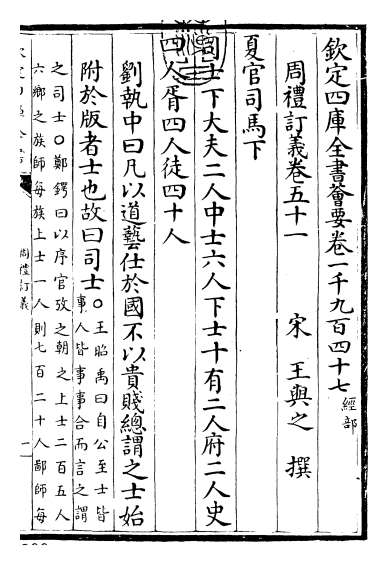 欽定四庫全書薈要卷一千九百四十七經部
周禮訂義卷五十一
宋 王與之 撰
夏官司馬下
司士下大夫二人中士六人下士十有二人府二人史
四人胥四人徒四十人
劉執中曰凡以道藝仕於國不以貴賤總謂之士始
附於版者士也故曰司士○王昭禹曰自公至士皆
事人皆事事合而言之謂
之司士○鄭鍔曰以序官攷之朝之上士二百五人
六鄉之族師每族上士一人則七百二十人鄙師每
周禮訂義
一